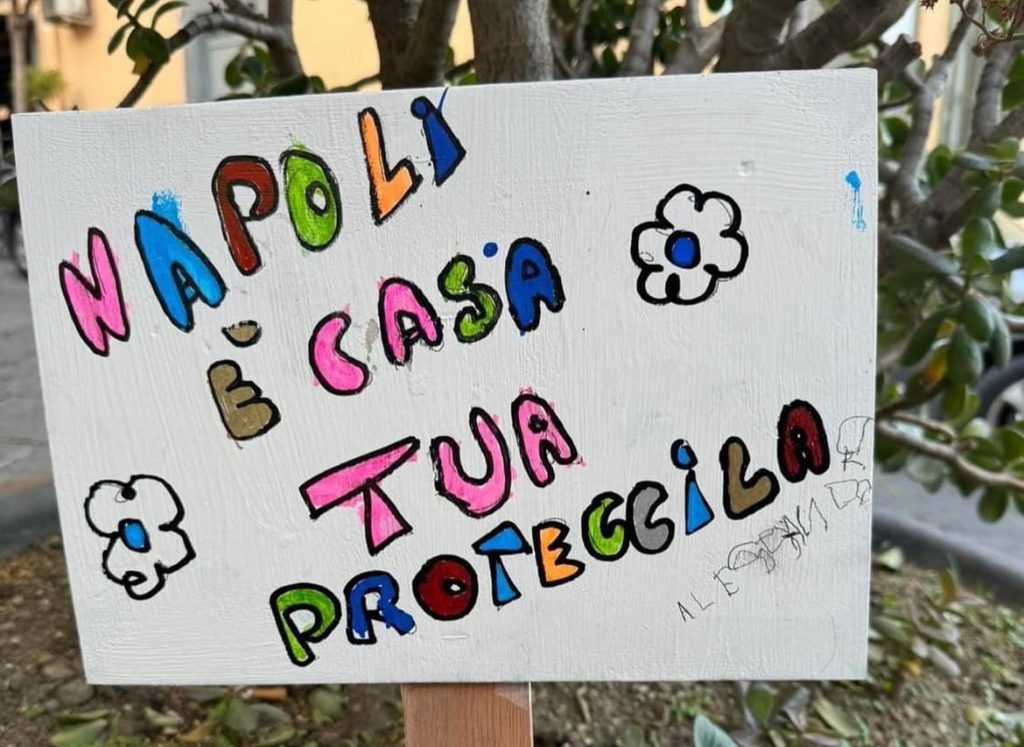 NAPOLI
È CASA
TUA
PROTECCILA